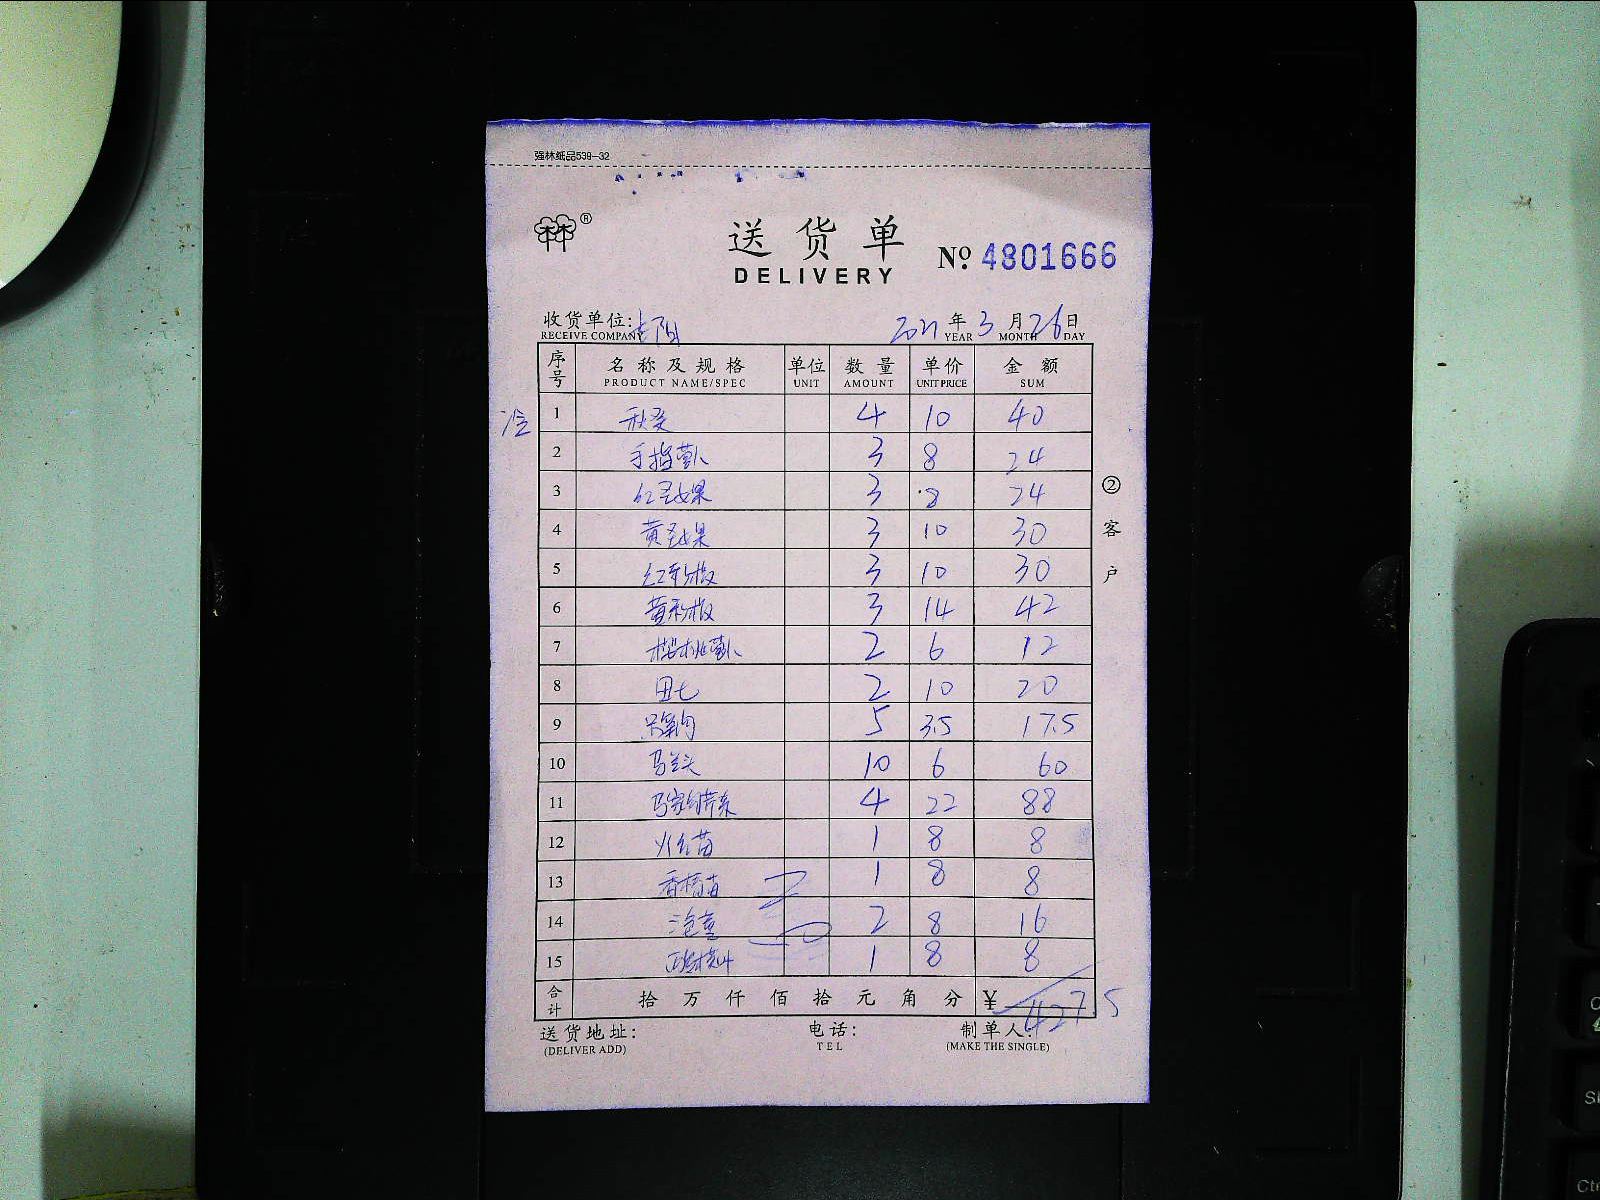 强林纸品539-32
®
送货单
DELIVERY
No. 4801666
收货单位:
RECEIVE COMPANY
2021年3月26日
YEAR MONTH DAY
序号 名称及规格 单位 数量 单价 金额
PRODUCT NAME/SPEC UNIT AMOUNT UNIT PRICE SUM
冷
1 秋葵 4 10 40
2 手指萝卜 3 8 24
3 红圣女果 3 8 24
4 黄圣女果 3 10 30
5 红彩椒 3 10 30
6 黄彩椒 3 14 42
7 樱桃萝卜 2 6 12
8 田七 2 10 20
9 5 3.5 17.5
10 马兰头 10 6 60
11 4 22 88
12 苗 1 8 8
13 苗 1 8 8
14 2 8 16
15 1 8 8
合计 拾万仟佰拾元角分 ¥ 427.5
② 客户
送货地址:
(DELIVER ADD)
电话:
TEL
制单人:
(MAKE THE SINGLE)
S
Ct